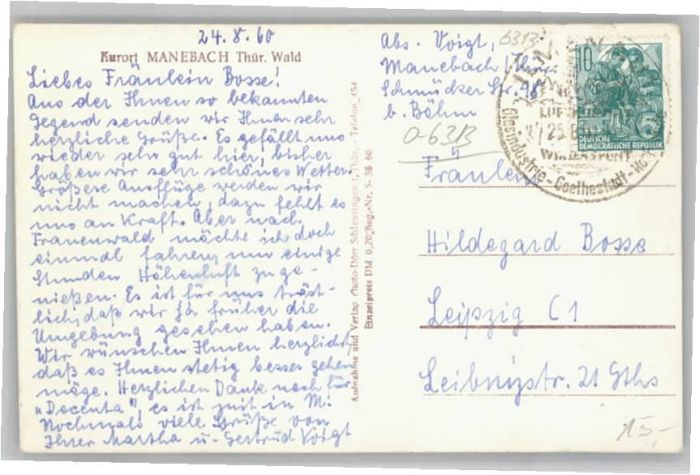 24.8.60
Kurort MANEBACH Thür. Wald
Liebes Fräulein Bosse!
Aus der Ihnen so bekannten
Gegend senden wir Ihnen sehr
herzliche Grüße. Es gefällt uns
wieder sehr gut hier, bisher
haben wir sehr schönes Wetter.
Größere Ausflüge werden wir
nicht machen, dazu fehlt es
uns an Kraft. Aber nach
Frauenwald möchte ich doch
einmal fahren, um einige
Stunden Höhenluft zu ge-
nießen. Es ist für uns tröst-
lich, daß wir ja früher die
Umgebung gesehen haben.
Wir wünschen Ihnen herzlichst,
daß es Ihnen stetig besser gehen
möge. Herzlichen Dank noch für
"Docenta", es ist mit in M.
Nochmals viele Grüße von
Ihner Martha u. Gertrud Voigt
Aufnahme und Verlag Photo-Dörr Schleusingen i. Thür. - Telefon 454
Einzelpreis DM 0,20 Reg.-Nr. S 36 60
Abs. Voigt,
Manebach i/Thür.
Schmücker Str. 98
b. Böhm
6313
0-6313
10
5
DEUTSCHE
DEMOKRATISCHE REPUBLIK
WINTERSPORT
Glasindustrie - Goethestadt
Fräulein
Hildegard Bosse
Leipzig C1
Leibnizstr. 21 Gths
15,-